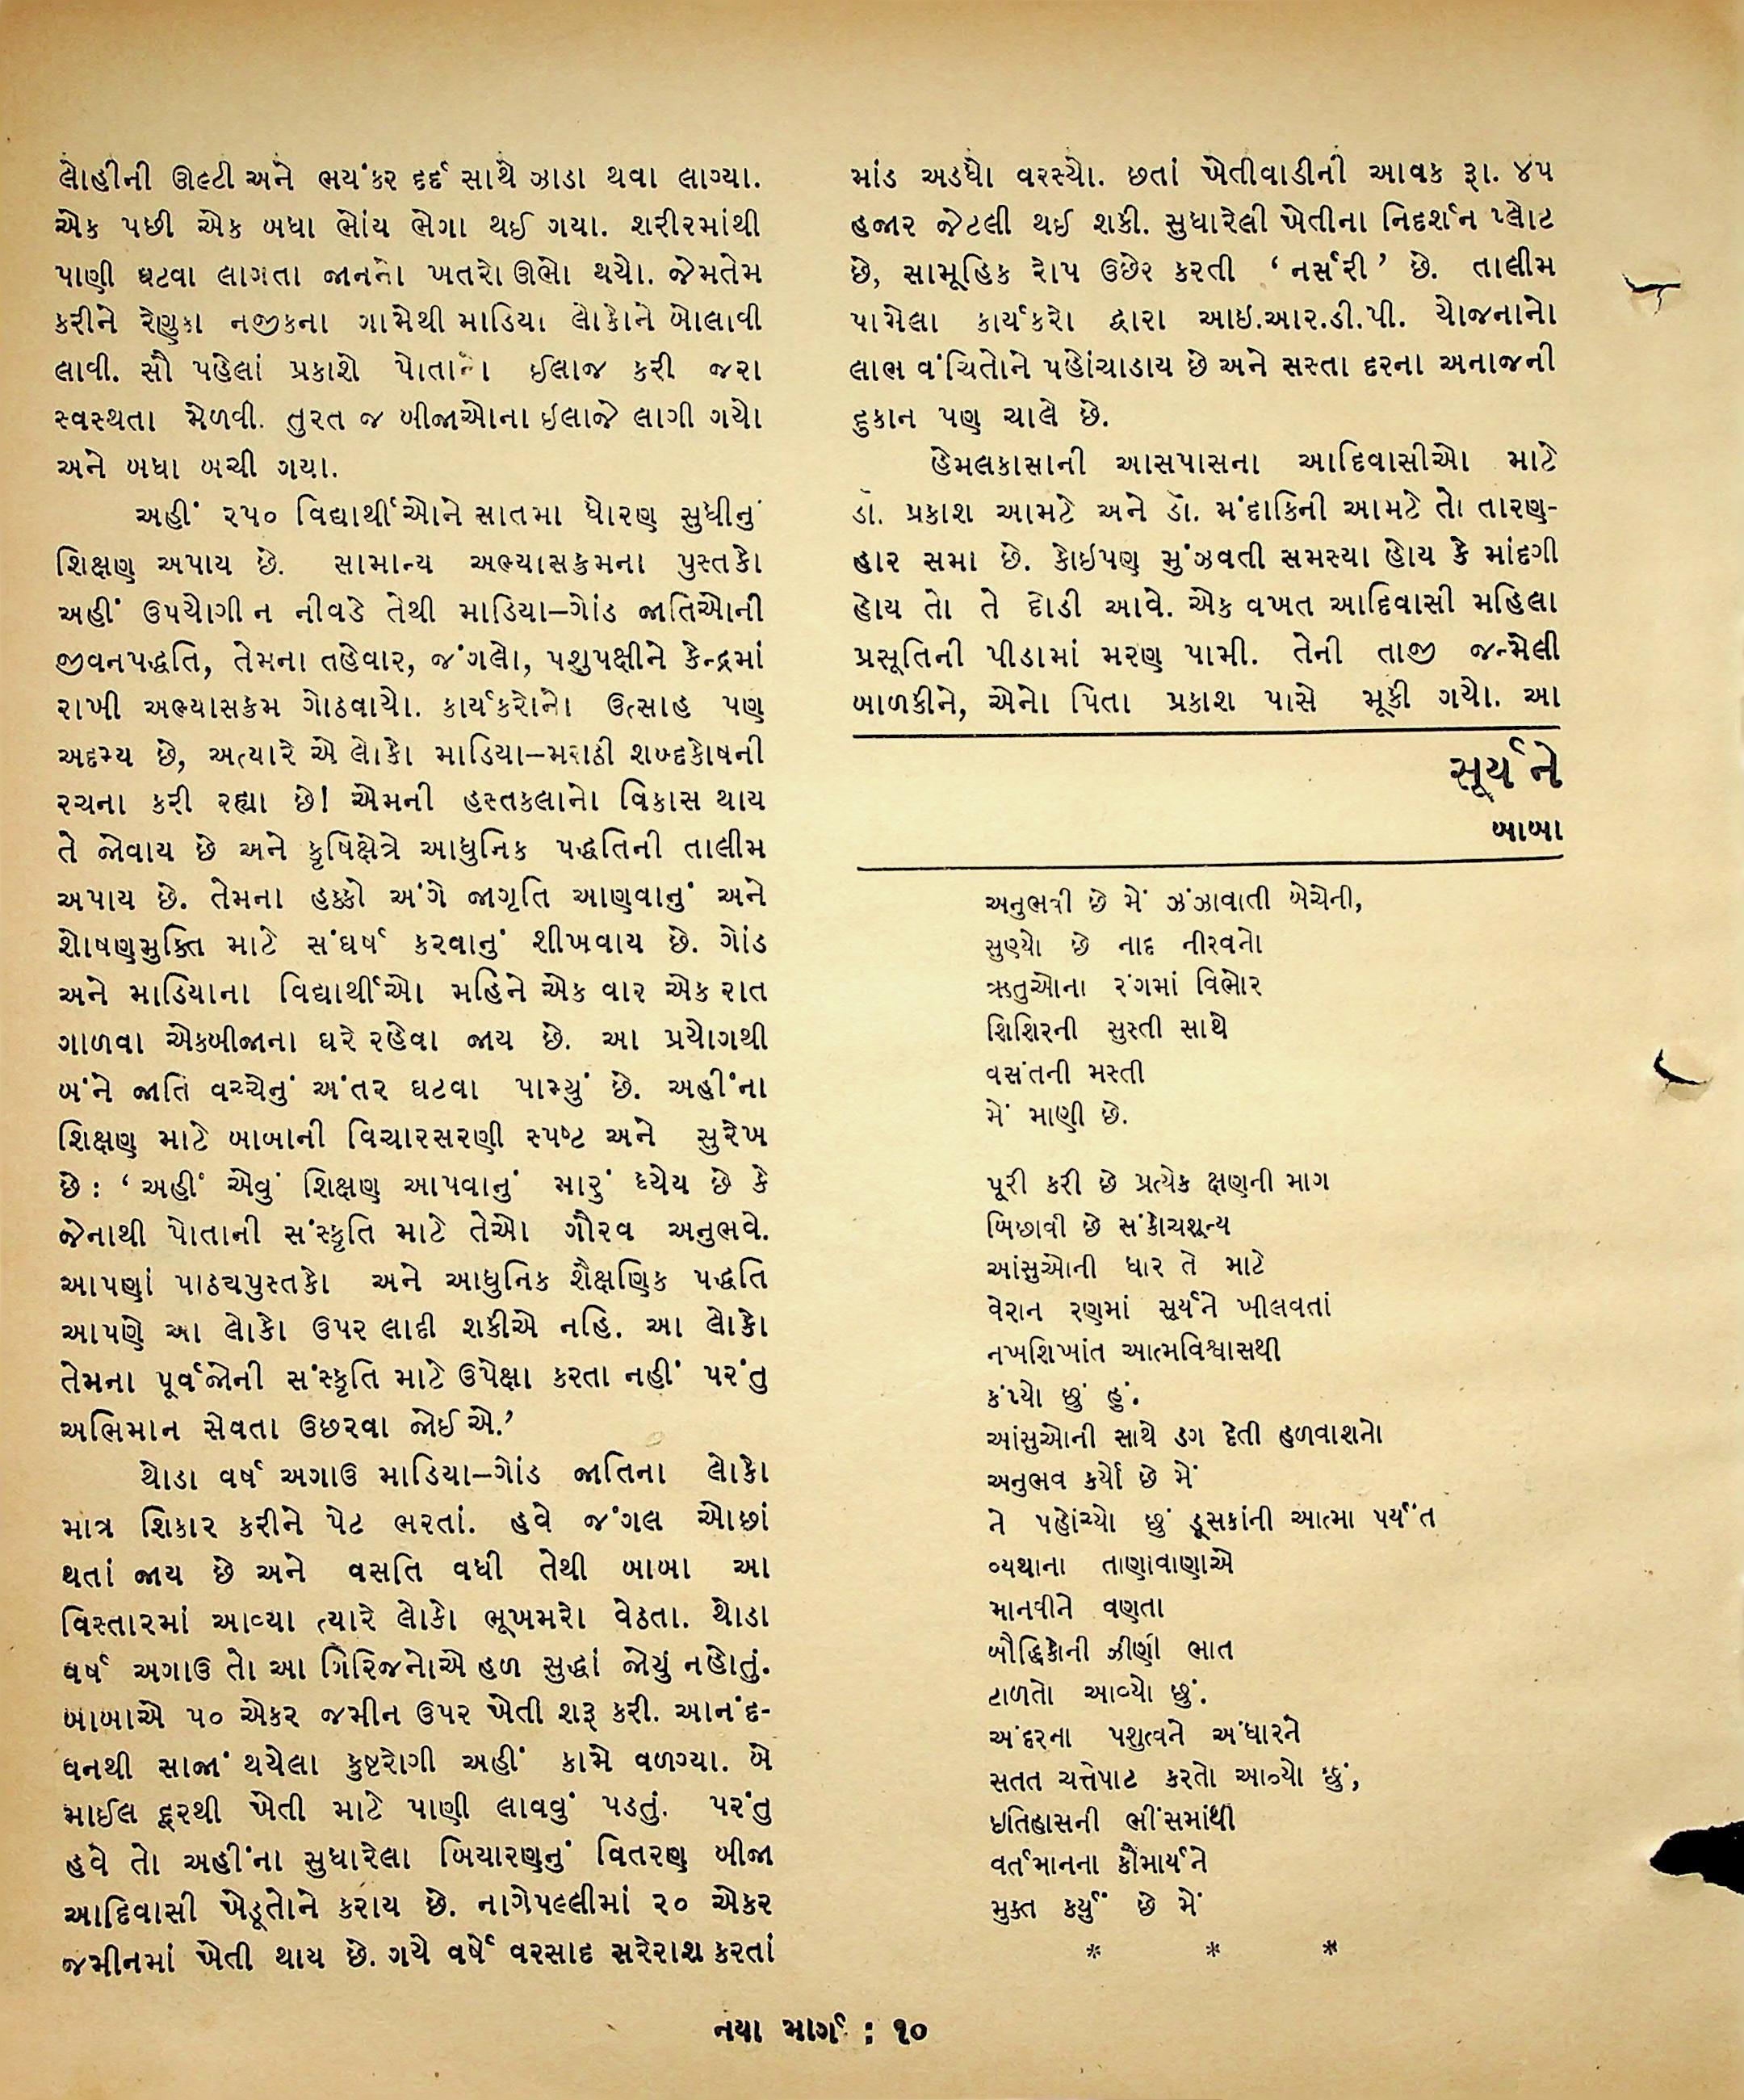 લોહીની ઊલ્ટી અને ભયંકર દર્દ સાથે ઝાડા થવા લાગ્યા.
એક પછી એક બધા ભોંય ભેગા થઈ ગયા. શરીરમાંથી
પાણી ઘટવા લાગતા જાનનો ખતરો ઊભો થયો. જેમતેમ
કરીને રેણુકા નજીકના ગામેથી માડિયા લોકોને બોલાવી
લાવી. સૌ પહેલાં પ્રકાશે પોતાનો ઈલાજ કરી જરા
સ્વસ્થતા મેળવી. તુરત જ બીજાઓના ઈલાજે લાગી ગયો
અને બધા બચી ગયા.
અહીં ૨૫૦ વિદ્યાર્થીઓને સાતમા ધોરણ સુધીનું
શિક્ષણ અપાય છે. સામાન્ય અભ્યાસક્રમના પુસ્તકો
અહીં ઉપયોગી ન નીવડે તેથી માડિયા–ગોંડ જાતિઓની
જીવનપદ્ધતિ, તેમના તહેવાર, જંગલો, પશુપક્ષીને કેન્દ્રમાં
રાખી અભ્યાસક્રમ ગોઠવાયો. કાર્યકરોનો ઉત્સાહ પણ
અદમ્ય છે, અત્યારે એ લોકો માડિયા–મરાઠી શબ્દકોષની
રચના કરી રહ્યા છે! એમની હસ્તકલાનો વિકાસ થાય
તે જોવાય છે અને કૃષિક્ષેત્રે આધુનિક પદ્ધતિની તાલીમ
અપાય છે. તેમના હક્કો અંગે જાગૃતિ આણવાનું અને
શોષણમુક્તિ માટે સંઘર્ષ કરવાનું શીખવાય છે. ગોંડ
અને માડિયાના વિદ્યાર્થીઓ મહિને એક વાર એક રાત
ગાળવા એકબીજાના ઘરે રહેવા જાય છે. આ પ્રયોગથી
બંને જાતિ વચ્ચેનું અંતર ઘટવા પામ્યું છે. અહીંના
શિક્ષણ માટે બાબાની વિચારસરણી સ્પષ્ટ અને સુરેખ
છે: ‘અહીં એવું શિક્ષણ આપવાનું મારું ધ્યેય છે કે
જેનાથી પોતાની સંસ્કૃતિ માટે તેઓ ગૌરવ અનુભવે.
આપણાં પાઠ્યપુસ્તકો અને આધુનિક શૈક્ષણિક પદ્ધતિ
આપણે આ લોકો ઉપર લાદી શકીએ નહિ. આ લોકો
તેમના પૂર્વજોની સંસ્કૃતિ માટે ઉપેક્ષા કરતા નહીં પરંતુ
અભિમાન સેવતા ઉછરવા જોઈએ.’
થોડા વર્ષ અગાઉ માડિયા–ગોંડ જાતિના લોકો
માત્ર શિકાર કરીને પેટ ભરતાં. હવે જંગલ ઓછાં
થતાં જાય છે અને વસતિ વધી તેથી બાબા આ
વિસ્તારમાં આવ્યા ત્યારે લોકો ભૂખમરો વેઠતા. થોડા
વર્ષ અગાઉ તો આ ગિરિજનોએ હળ સુદ્ધાં જોયું નહોતું.
બાબાએ ૫૦ એકર જમીન ઉપર ખેતી શરૂ કરી. આનંદ-
વનથી સાજાં થયેલા કુષ્ટરોગી અહીં કામે વળગ્યા. બે
માઈલ દૂરથી ખેતી માટે પાણી લાવવું પડતું. પરંતુ
હવે તો અહીંના સુધારેલા બિયારણનું વિતરણ બીજા
આદિવાસી ખેડૂતોને કરાય છે. નાગેપલ્લીમાં ૨૦ એકર
જમીનમાં ખેતી થાય છે. ગયે વર્ષે વરસાદ સરેરાશ કરતાં
માંડ અડધો વરસ્યો. છતાં ખેતીવાડીની આવક રૂા. ૪૫
હજાર જેટલી થઈ શકી. સુધારેલી ખેતીના નિદર્શન પ્લોટ
છે, સામૂહિક રોપ ઉછેર કરતી ‘નર્સરી’ છે. તાલીમ
પામેલા કાર્યકરો દ્વારા આઇ.આર.ડી.પી. યોજનાનો
લાભ વંચિતોને પહોંચાડાય છે અને સસ્તા દરના અનાજની
દુકાન પણ ચાલે છે.
હેમલકાસાની આસપાસના આદિવાસીઓ માટે
ડૉ. પ્રકાશ આમટે અને ડૉ. મંદાકિની આમટે તો તારણ-
હાર સમા છે. કોઇપણ મુંઝવતી સમસ્યા હોય કે માંદગી
હોય તો તે દોડી આવે. એક વખત આદિવાસી મહિલા
પ્રસૂતિની પીડામાં મરણ પામી. તેની તાજી જન્મેલી
બાળકીને, એનો પિતા પ્રકાશ પાસે મૂકી ગયો. આ
સૂર્યને
બાબા
અનુભવી છે મેં ઝંઝાવાતી બેચેની,
સુણ્યો છે નાદ નીરવનો
ઋતુઓના રંગમાં વિભોર
શિશિરની સુસ્તી સાથે
વસંતની મસ્તી
મેં માણી છે.
પૂરી કરી છે પ્રત્યેક ક્ષણની માગ
બિછાવી છે સંકોચશૂન્ય
આંસુઓની ધાર તે માટે
વેરાન રણમાં સૂર્યને ખીલવતાં
નખશિખાંત આત્મવિશ્વાસથી
કંપ્યો છું હું.
આંસુઓની સાથે ડગ દેતી હળવાશનો
અનુભવ કર્યો છે મેં
ને પહોંચ્યો છું ડૂસકાંની આત્મા પર્યંત
વ્યથાના તાણાવાણાએ
માનવીને વણતા
બૌદ્ધિકોની ઝીણી ભાત
ટાળતો આવ્યો છું.
અંદરના પશુત્વને અંધારને
સતત ચત્તેપાટ કરતો આવ્યો છું,
ઇતિહાસની ભીંસમાંથી
વર્તમાનના કૌમાર્યને
મુક્ત કર્યું છે મેં
* * *
નયા માર્ગ : ૧૦